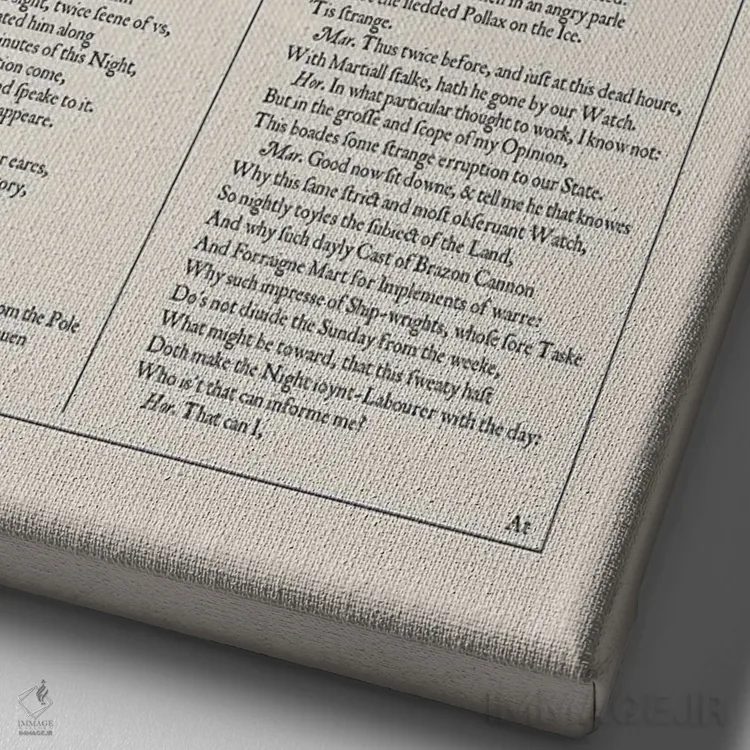 sight, twice ſeene of vs,
him along
minutes of this Night,
come,
ſpeake to it.
appeare.
eares,
ſtory,
from the Pole
in an angry parle
the ſledded Pollax on the Ice.
'Tis ſtrange.
Mar. Thus twice before, and iuſt at this dead houre,
With Martiall ſtalke, hath he gone by our Watch.
Hor. In what particular thought to work, I know not:
But in the groſſe and ſcope of my Opinion,
This boades ſome ſtrange erruption to our State.
Mar. Good now ſit downe, & tell me he that knowes
Why this ſame ſtrict and moſt obſeruant Watch,
So nightly toyles the ſubiect of the Land,
And why ſuch dayly Cast of Brazon Cannon
And Forraigne Mart for Implements of warre:
Why such impresse of Ship-wrights, whoſe ſore Taske
Do's not diuide the Sunday from the weeke,
What might be toward, that this ſweaty haſt
Doth make the Night ioynt-Labourer with the day:
Who is't that can informe me?
Hor. That can I,
At
IMMAGE
IMMAGE.IR
IMMAGE.IR